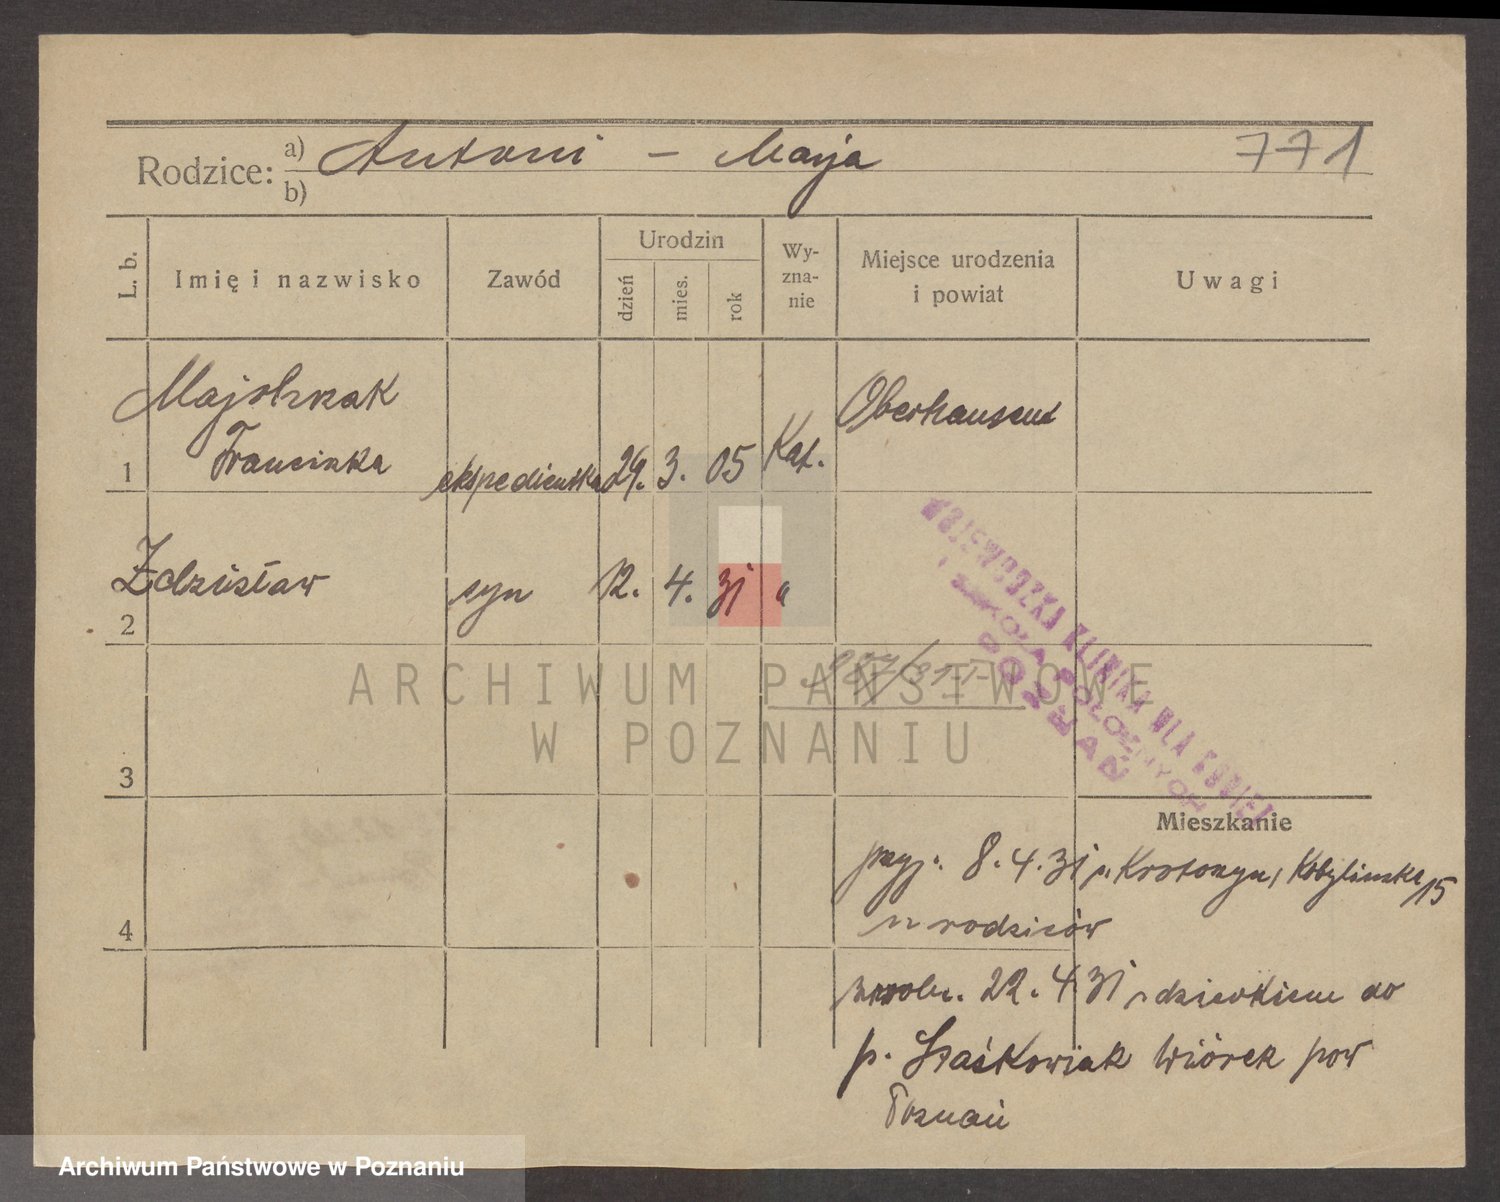 Rodzice: a) b) Antoni – Marja 771
L. b. Imię i nazwisko Zawód Urodzin dzień mies. rok Wy-zna-nie Miejsce urodzenia i powiat Uwagi
Majchrzak
1 Franciszka ekspedientka 29. 3. 05 Kat. Oberhausen
2 Zdzisław syn 12. 4. 31 "
WOJEWÓDZKA KLINIKA DLA KOBIET
I SZKOŁA POŁOŻNYCH
POZNAŃ
3
Mieszkanie
przyj. 8.4.31 z Krotoszyn, Kobylińska 15
4 u rodziców
22.4.31 z dzieckiem do
p. Staśkowiak Wiórek pow
Poznań
ARCHIWUM PAŃSTWOWE
W POZNANIU
Archiwum Państwowe w Poznaniu